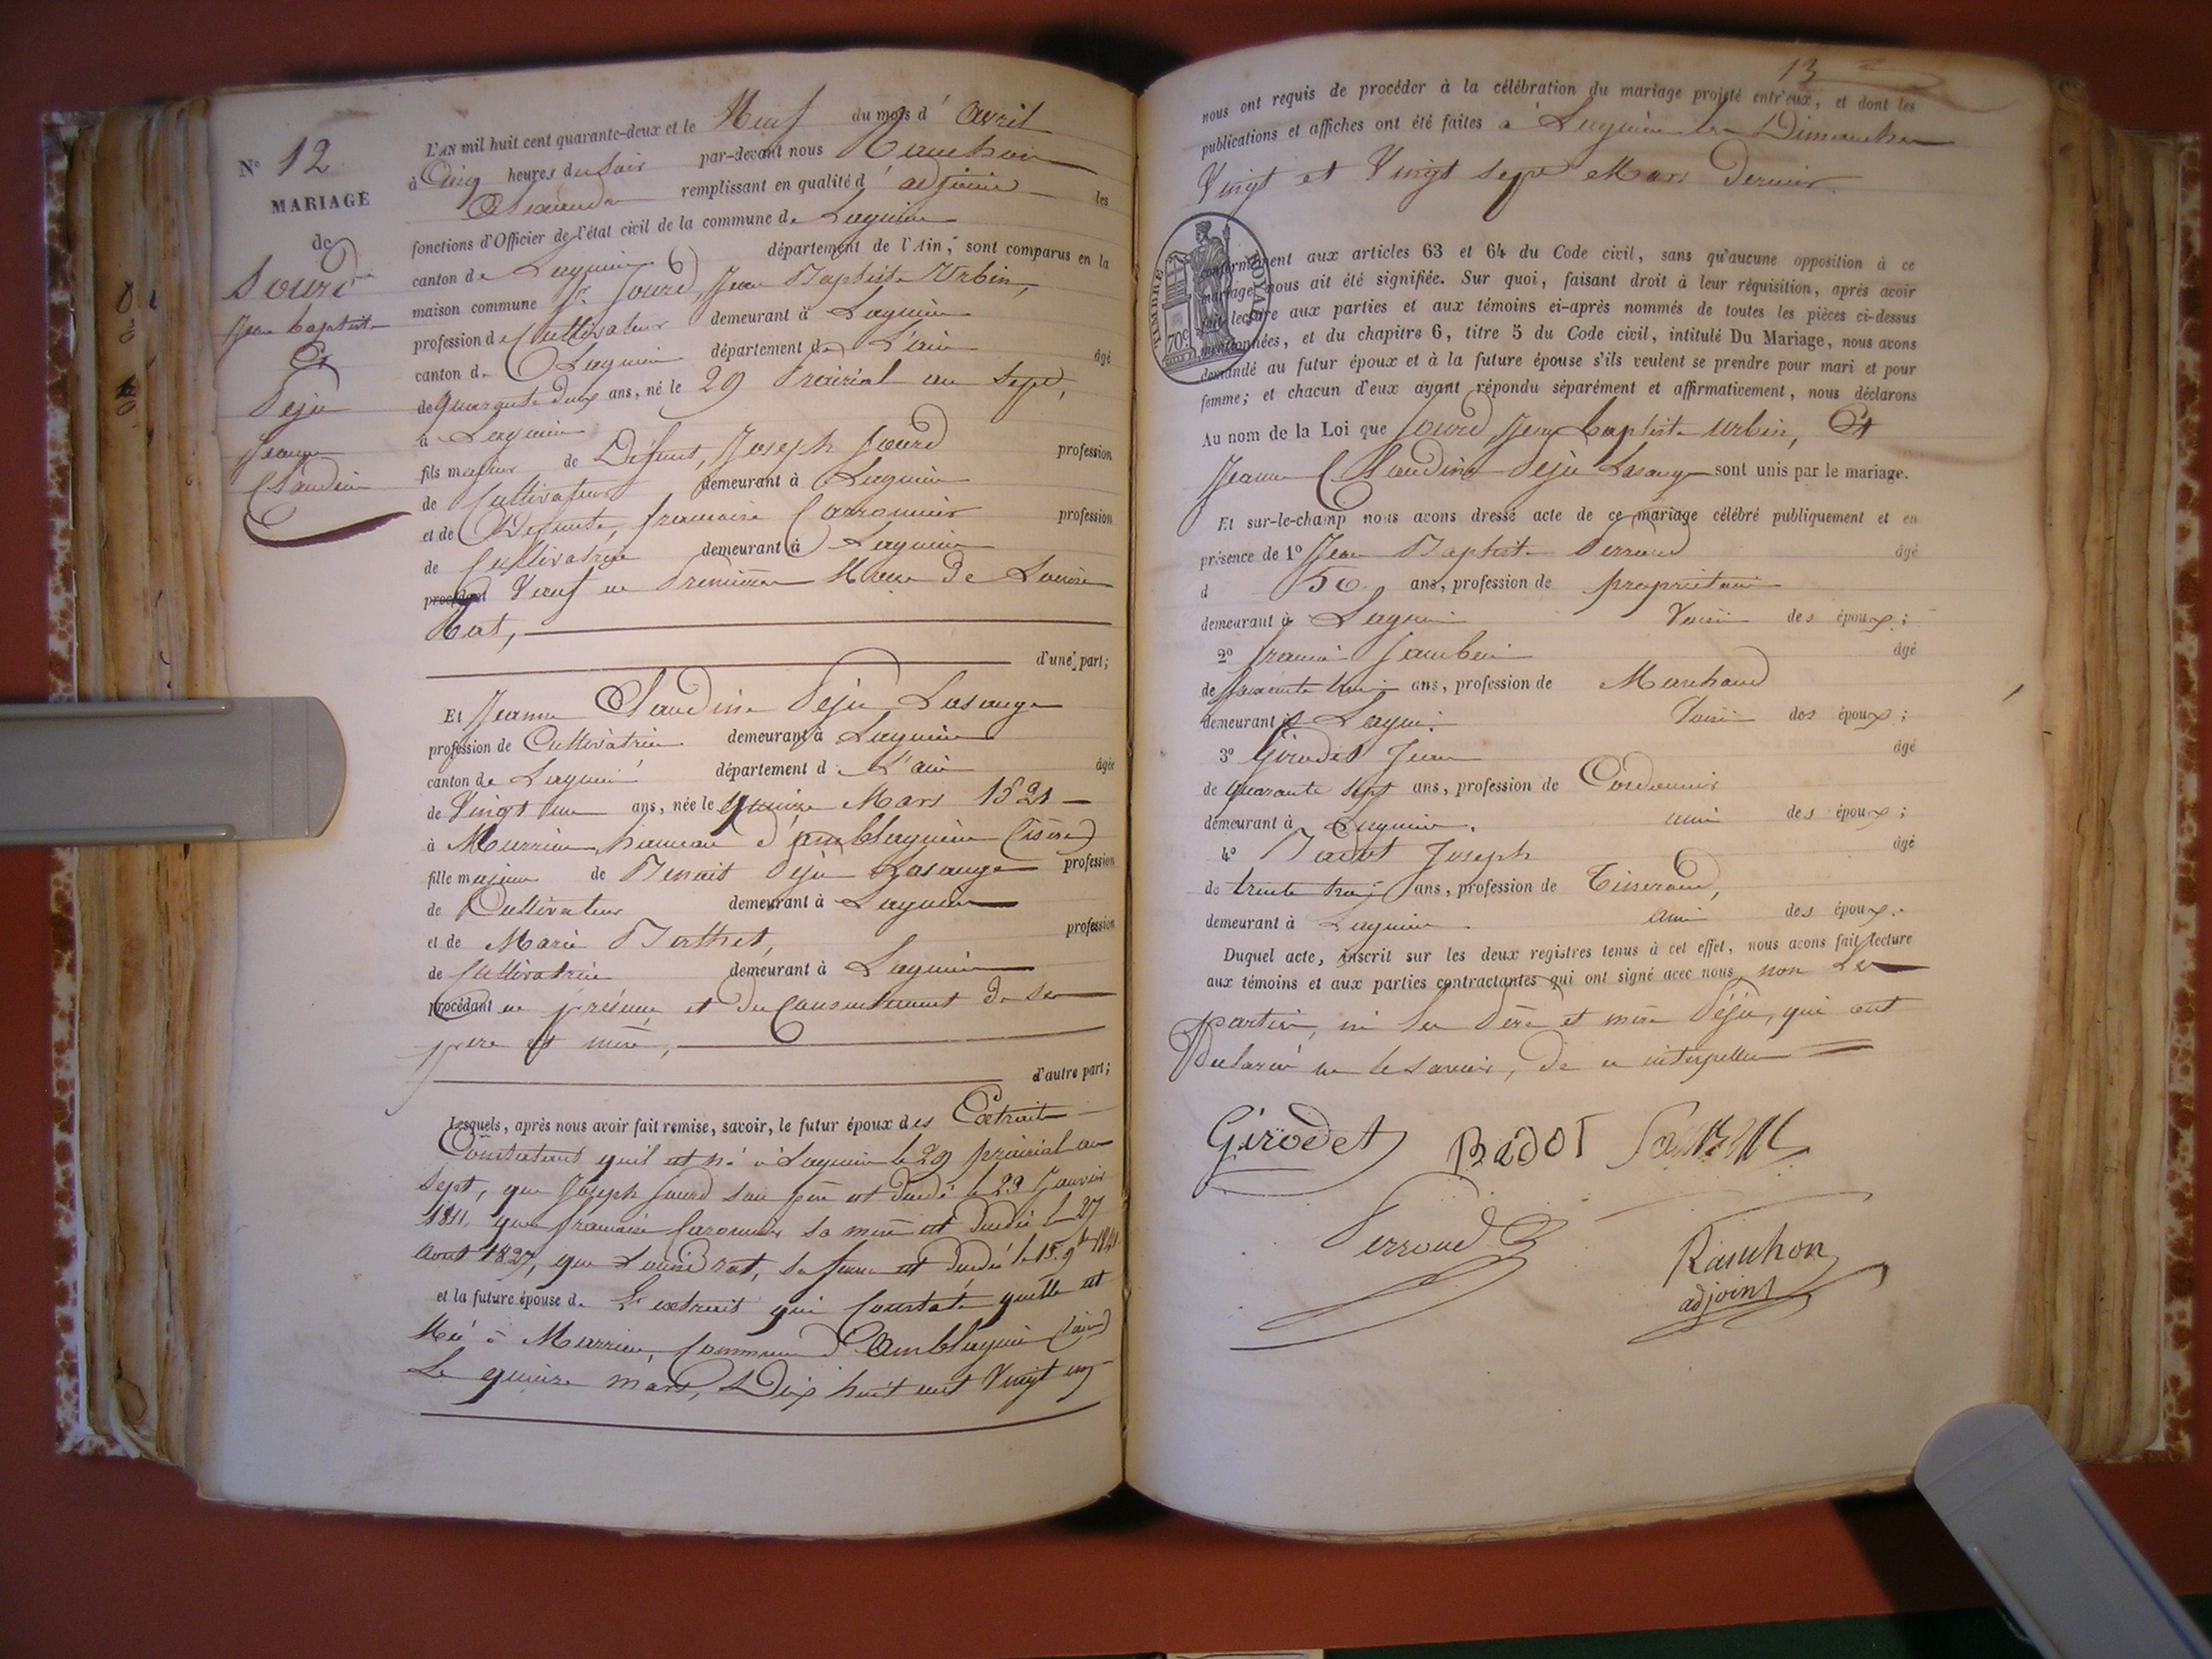 N° 12
MARIAGE
de
Sourd
Jean Baptiste
Et
Péju
Jeanne
Claudine
L'AN mil huit cent quarante-deux et le Neuf du mois d'Avril
à Cinq heures du Soir par-devant nous Rauchon
Alexandre remplissant en qualité d'adjoint les
fonctions d'Officier de l'état civil de la commune de Lagnieu
canton de Lagnieu département de l'Ain, sont comparus en la
maison commune Sr. Sourd, Jean Baptiste Urbin,
profession de Cultivateur demeurant à Lagnieu
canton de Lagnieu département de L'ain âgé
de quarante deux ans, né le 29 Prairial an Sept,
à Lagnieu
fils majeur de Défunt, Joseph Sourd profession
de Cultivateur demeurant à Lagnieu
et de Défunte, francoise Caronnier profession
de Cultivatrice demeurant à Lagnieu
procédant Veuf en Premières Noces de Louise
Rat,
d'une part;
Et Jeanne Claudine Péju Lasauge
profession de Cultivatrice demeurant à Lagnieu
canton de Lagnieu département de L'ain âgée
de Vingt une ans, née le quinze Mars 1821
à Marrieu hameau d'amblagnieu (isère)
fille majeure de Benoit Péju Lasauge profession
de Cultivateur demeurant à Lagnieu
et de Marie Berthet, profession
de Cultivatrice demeurant à Lagnieu
procédant en présence et du Consentement de ses
père et mère,
d'autre part;
Lesquels, après nous avoir fait remise, savoir, le futur époux des Extraits
Constatant quil est né à Lagnieu le 29 prairial an
Sept, que Joseph Sourd son père est décédé le 29 Janvier
1811, que francoise Caronnier sa mère est décédée le 27
Aout 1827, que Louise rat, sa femme est décédée le 15 9bre 1841.
et la future épouse de L'extrait qui Constate quelle est
Née à Marrieu, Commune d'Amblagnieu
Le quinze mars, Dix huit cent Vingt un
13
nous ont requis de procéder à la célébration du mariage projeté entr'eux, et dont les
publications et affiches ont été faites à Lagnieu les Dimanches
Vingt et Vingt sept Mars Dernier.
TIMBRE ROYAL
70c
conformément aux articles 63 et 64 du Code civil, sans qu'aucune opposition à ce
mariage nous ait été signifiée. Sur quoi, faisant droit à leur réquisition, après avoir
fait lecture aux parties et aux témoins ci-après nommés de toutes les pièces ci-dessus
mentionnées, et du chapitre 6, titre 5 du Code civil, intitulé Du Mariage, nous avons
demandé au futur époux et à la future épouse s'ils veulent se prendre pour mari et pour
femme; et chacun d'eux ayant répondu séparément et affirmativement, nous déclarons
Au nom de la Loi que Sourd, Jean Baptiste Urbin, Et
Jeanne Claudine Péju Lasauge sont unis par le mariage.
Et sur-le-champ nous avons dressé acte de ce mariage célébré publiquement et en
présence de 1° Jean Baptiste Perroud âgé
d 50 ans, profession de propriétaire
demeurant à Lagnieu Voisin des époux;
2° francois Jambin âgé
de ans, profession de Marchand
demeurant à Lagnieu Voisin des époux;
3° Girodet Jean âgé
de quarante sept ans, profession de Cordonnier
demeurant à Lagnieu. ami des époux;
4° Badot Joseph âgé
de trente trois ans, profession de Tisserand,
demeurant à Lagnieu. ami des époux.
Duquel acte, inscrit sur les deux registres tenus à cet effet, nous avons fait lecture
aux témoins et aux parties contractantes qui ont signé avec nous, non Les
parties, ni les Père et mère Péju, qui ont
Déclaré ne le savoir, de ce interpellés
Girodet BADOT
Perroud
Rauchon
adjoint